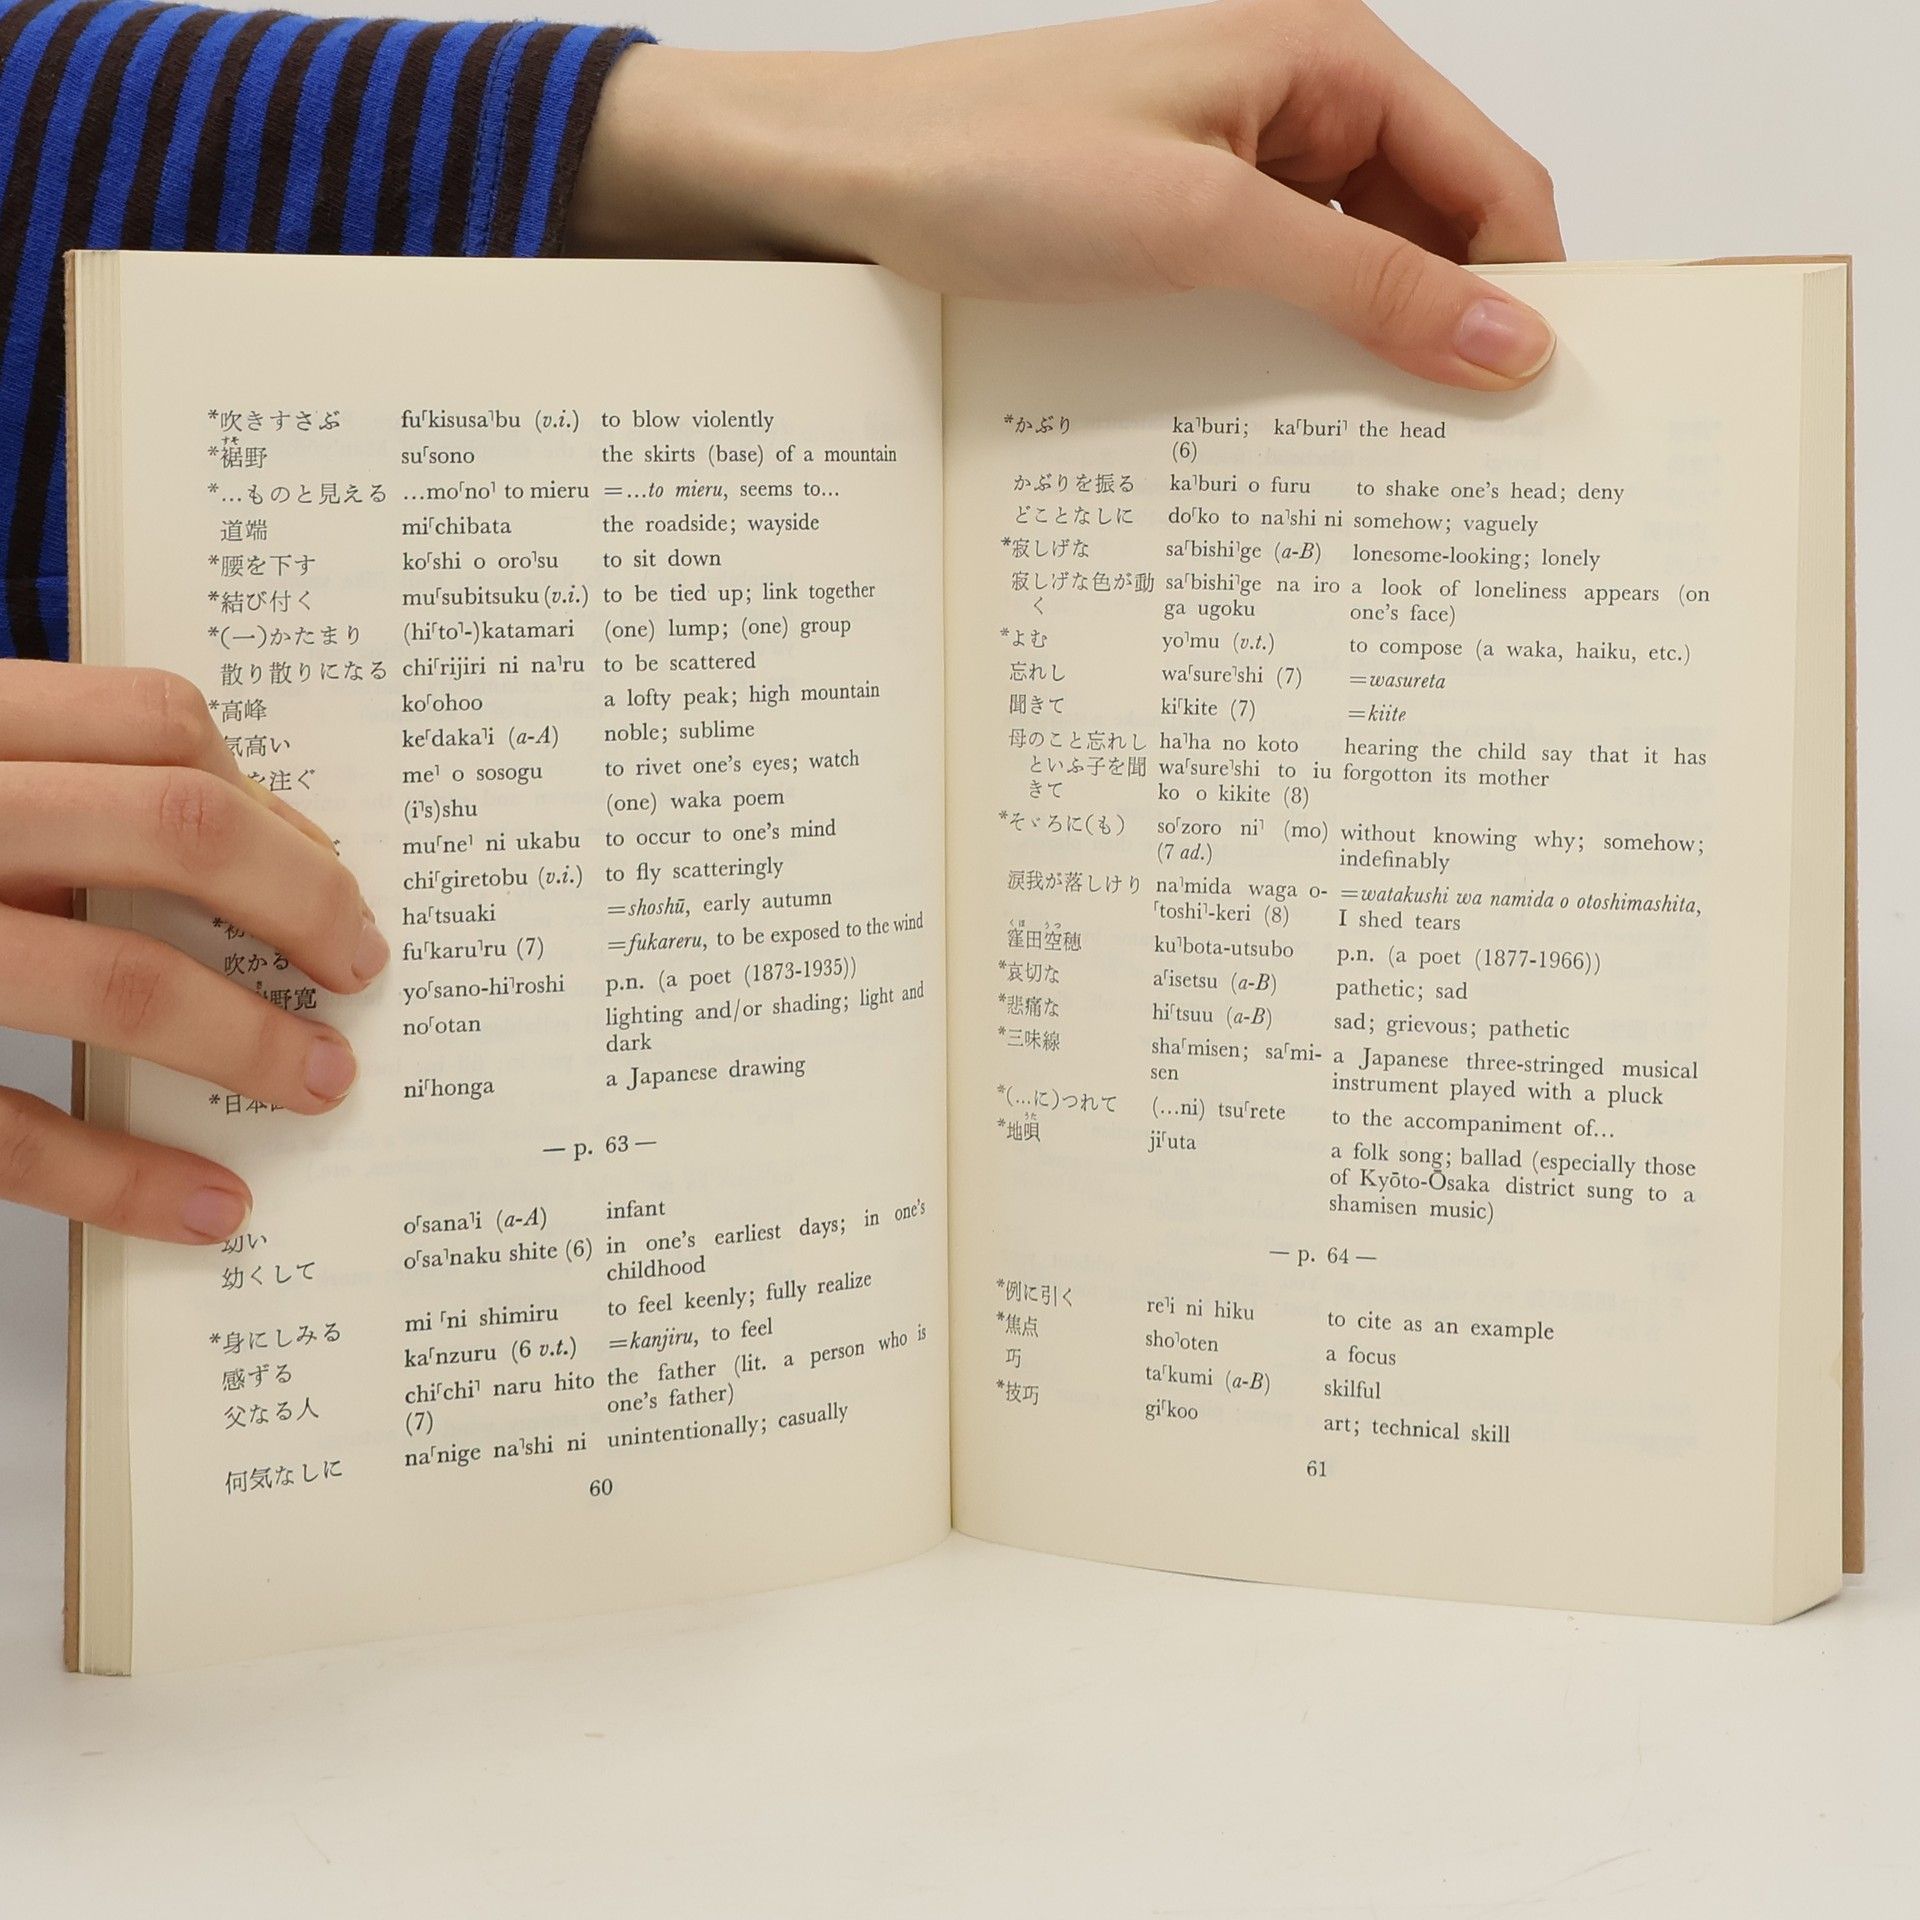 *吹きすさぶ fu⌈kisusa⌉bu (v.i.) to blow violently
すそ
*裾野 su⌈sono the skirts (base) of a mountain
*…ものと見える …mo⌈no⌉ to mieru =…to mieru, seems to…
道端 mi⌈chibata the roadside; wayside
*腰を下す ko⌈shi o oro⌉su to sit down
*結び付く mu⌈subitsuku (v.i.) to be tied up; link together
*(一)かたまり (hi⌈to⌉-)katamari (one) lump; (one) group
散り散りになる chi⌈rijiri ni na⌉ru to be scattered
*高峰 ko⌈ohoo a lofty peak; high mountain
気高い ke⌈daka⌉i (a-A) noble; sublime
を注ぐ me⌉ o sosogu to rivet one's eyes; watch
(i⌉s)shu (one) waka poem
mu⌈ne⌉ ni ukabu to occur to one's mind
chi⌈giretobu (v.i.) to fly scatteringly
ha⌈tsuaki =shoshū, early autumn
吹かる fu⌈karu⌉ru (7) =fukareru, to be exposed to the wind
野寛 yo⌈sano-hi⌉roshi p.n. (a poet (1873-1935))
no⌈otan lighting and/or shading; light and
dark
*日本 ni⌈honga a Japanese drawing
— p. 63 —
幼い o⌈sana⌉i (a-A) infant
幼くして o⌈sa⌉naku shite (6) in one's earliest days; in one's
childhood
*身にしみる mi ⌈ni shimiru to feel keenly; fully realize
感ずる ka⌈nzuru (6 v.t.) =kanjiru, to feel
父なる人 chi⌈chi⌉ naru hito the father (lit. a person who is
(7) one's father)
何気なしに na⌈nige na⌉shi ni unintentionally; casually
60
*かぶり ka⌉buri; ka⌈buri⌉ the head
(6)
かぶりを振る ka⌉buri o furu to shake one's head; deny
どことなしに do⌈ko to na⌉shi ni somehow; vaguely
*寂しげな sa⌈bishi⌉ge (a-B) lonesome-looking; lonely
寂しげな色が動 sa⌈bishi⌉ge na iro a look of loneliness appears (on
く ga ugoku one's face)
*よむ yo⌉mu (v.t.) to compose (a waka, haiku, etc.)
忘れし wa⌈sure⌉shi (7) =wasureta
聞きて ki⌈kite (7) =kiite
母のこと忘れし ha⌉ha no koto hearing the child say that it has
といふ子を聞 wa⌈sure⌉shi to iu forgotton its mother
きて ko o kikite (8)
*そゞろに(も) so⌈zoro ni⌉ (mo) without knowing why; somehow;
(7 ad.) indefinably
涙我が落しけり na⌉mida waga o- =watakushi wa namida o otoshimashita,
⌈toshi⌉-keri (8) I shed tears
くぼ うつ
窪田空穂 ku⌉bota-utsubo p.n. (a poet (1877-1966))
*哀切な a⌈isetsu (a-B) pathetic; sad
*悲痛な hi⌈tsuu (a-B) sad; grievous; pathetic
*三味線 sha⌈misen; sa⌈mi- a Japanese three-stringed musical
sen instrument played with a pluck
*(…に)つれて (…ni) tsu⌈rete to the accompaniment of…
うた
*地唄 ji⌈uta a folk song; ballad (especially those
of Kyōto-Ōsaka district sung to a
shamisen music)
— p. 64 —
*例に引く re⌉i ni hiku to cite as an example
*焦点 sho⌉oten a focus
巧 ta⌈kumi (a-B) skilful
*技巧 gi⌈koo art; technical skill
61